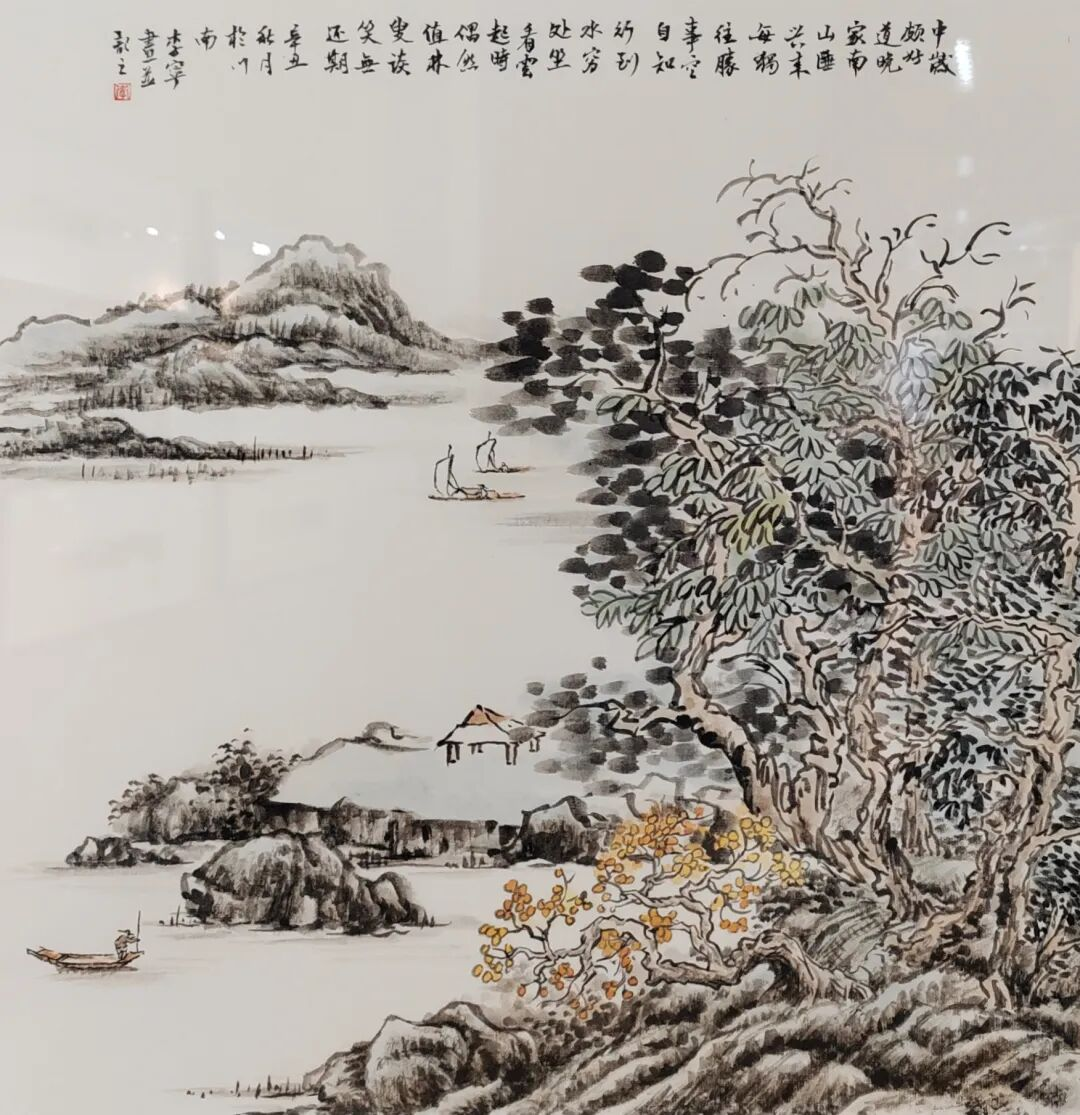 中歲
頗好
道晚
家南
山陲
兴来
每獨
往勝
事空
自知
行到
水穷
处坐
看雲
起時
偶然
值林
叟谈
笑無
还期
辛丑
秋月
於川
南
李寧
畫並
题之